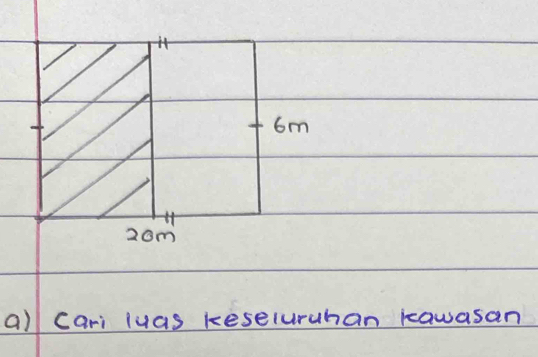 6m
20m
a) Cari luas keseluruhan kawasan